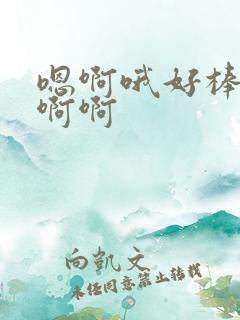 嗯啊哦好棒
啊啊
向凯文
未经同意禁止转载